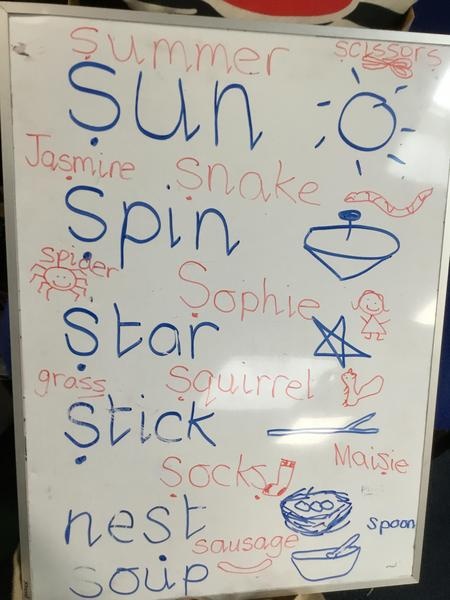 summer
scissors
sun
Jasmine
snake
spin
spider
Sophie
star
grass
squirrel
stick
socks
Maisie
nest
spoon
sausage
soup